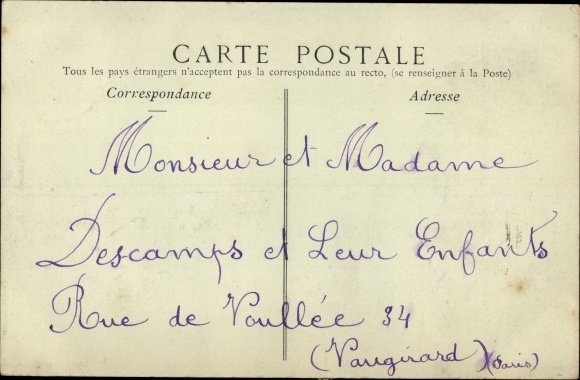 CARTE POSTALE
Tous les pays étrangers n'acceptent pas la correspondance au recto, (se renseigner à la Poste)
Correspondance
Adresse
Monsieur et Madame
Descamps et Leur Enfants
Rue de Voullée 34
(Vaugirard) (Paris)